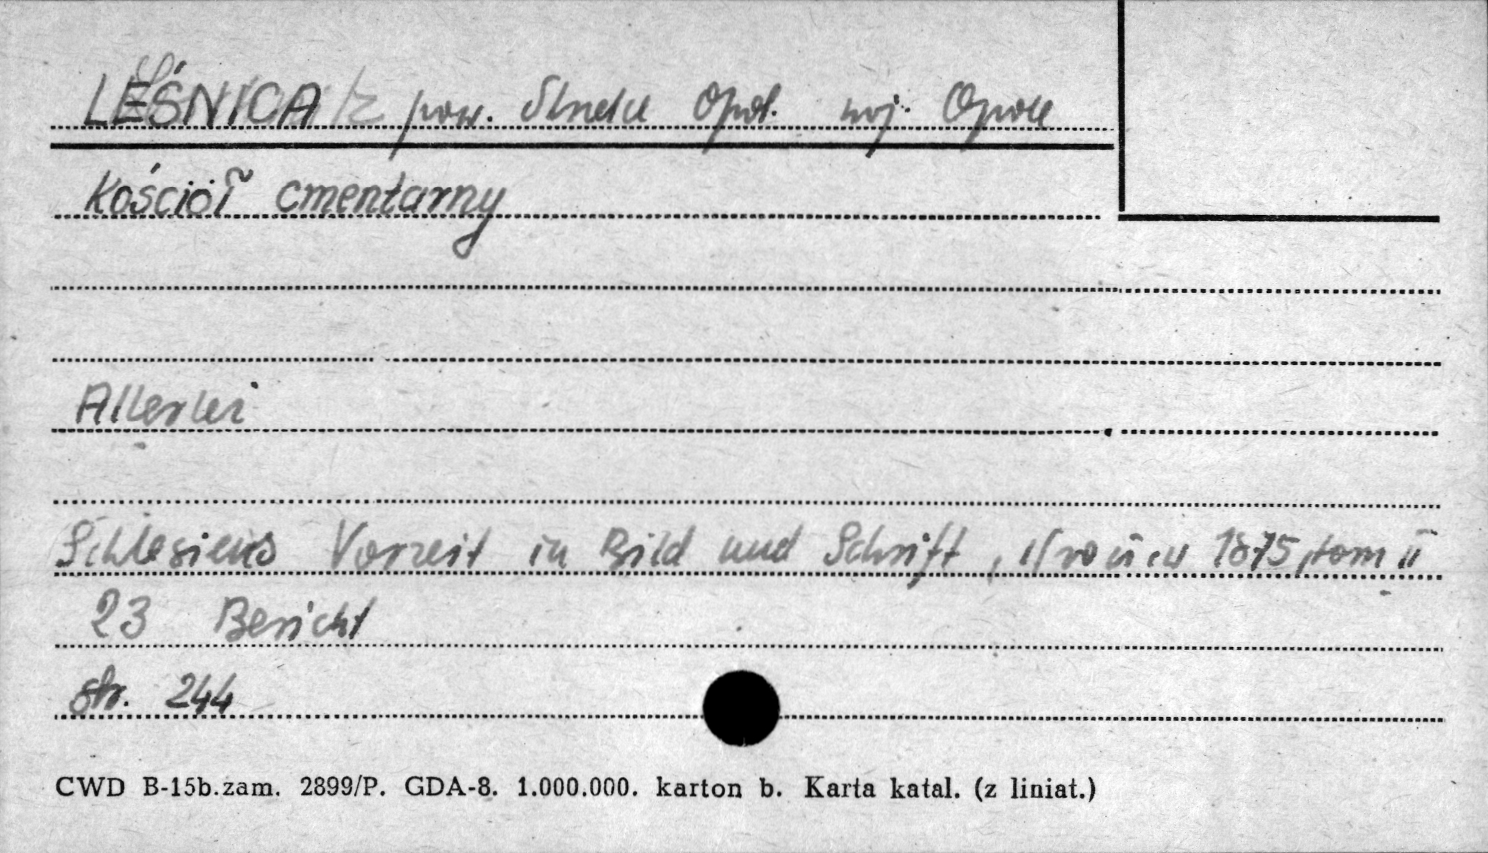 LEŚNICA pow. Strzelce Opol. woj. Opole
Kościół cmentarny
Allerlei
Schlesiens Vorzeit in Bild und Schrift, 1875, tom II
23 Bericht
str. 244
CWD B-15b.zam. 2899/P. GDA-8. 1.000.000. karton b. Karta katal. (z liniat.)